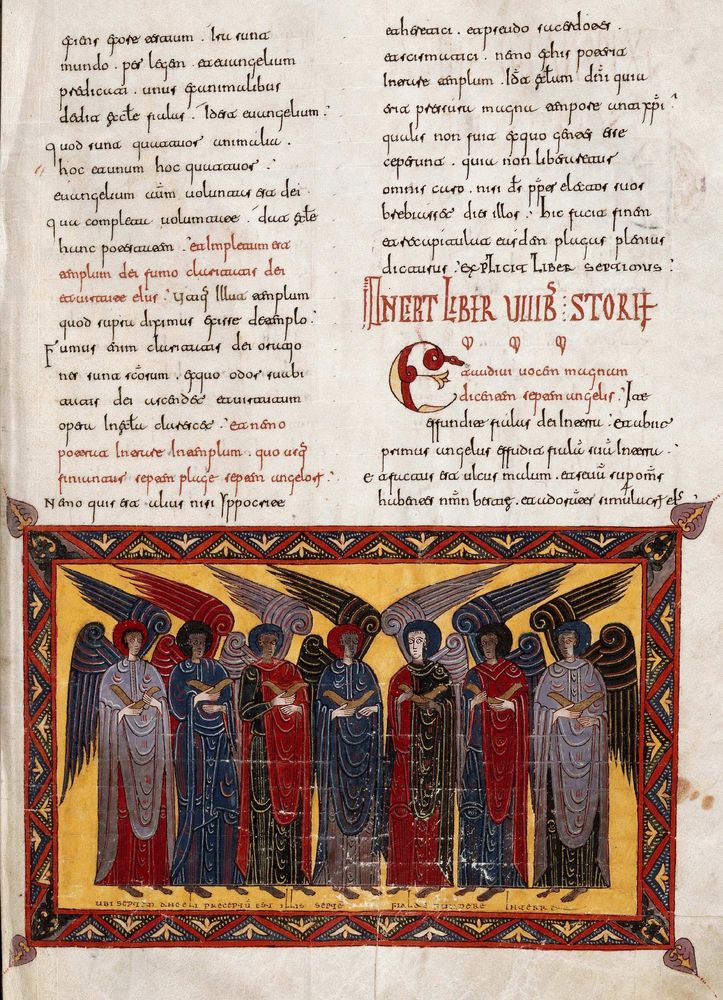 mundo . per legem . et evangelium
predicati . unus ex animalibus
dedit ęclę fialas . Id est evangelium .
quod sunt quattuor animalia .
hoc et unum hoc quattuor .
evangelium enim voluntas est dei
qua compleat voluntatem . dat ęclę
hunc potestatem . et Impletum est
templum dei fumo claritatis dei
et virtute eius . Utiq̄ Illut templum
quod supra diximus exisse de templo .
Fumus enim claritatis dei oratio
nes sunt scōrum . ex quo odor suabi
tatis et virtutem
operū In ęclā clarescet . et nemo
poterat Introire In templum . quo usq̄
finiantur septem plage septem angelorū
Nemo quis est alius nisi Ippocrite
et heretici . et pseudo sacerdotes
et scismatici . nemo ex his poterit
Introire templum . Id est ęclām .
erit pressura magna tempore antixp̄i .
qualis non fuit ex quo gentes esse
ceperunt . quia non liberaretur
omnis caro . nisi dś propter electos suos
brebiasset dies illos . hic facit finem
et recapitulat easdem plagas plenius
dicturus . EXPLICIT LIBER septimus .
INCIPIT LIBER VIIIb̄ : STORIE
Et audivi vocem magnam
dicentem septem angelis . Ite
effundite fialas dei In terra . et abiit
primus angelus effudit fialā suā In terra .
et factum est ulcus malum . et sevū sup omn̄s
habentes nmn bestię . et adorantes simulacr̄ eius
UBI SEPTEM ANGELI PRECEPTŪ EST ILLIS SEPTE FIALAS FUNDERE IN TERRA